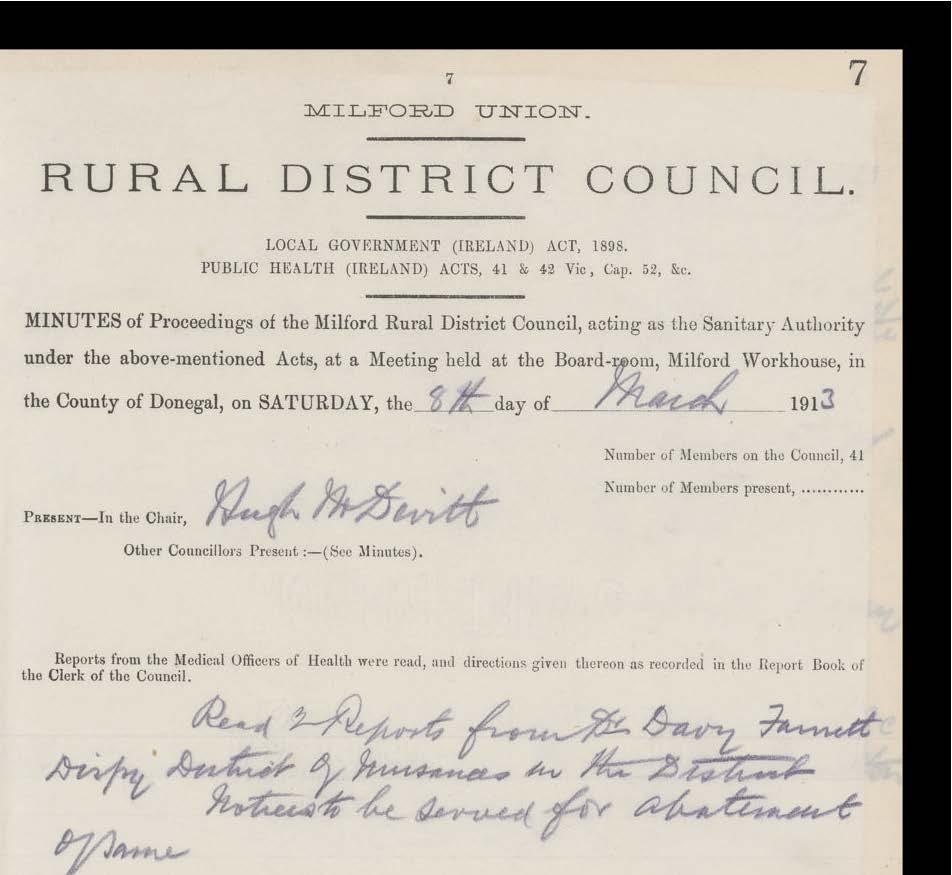 7
7
MILFORD UNION.
RURAL DISTRICT COUNCIL.
LOCAL GOVERNMENT (IRELAND) ACT, 1898.
PUBLIC HEALTH (IRELAND) ACTS, 41 & 42 Vic, Cap. 52, &c.
MINUTES of Proceedings of the Milford Rural District Council, acting as the Sanitary Authority
under the above-mentioned Acts, at a Meeting held at the Board-room, Milford Workhouse, in
the County of Donegal, on SATURDAY, the 8th day of March 1913
Number of Members on the Council, 41
Number of Members present, ............
PRESENT—In the Chair, Hugh McDevitt
Other Councillors Present :—(See Minutes).
Reports from the Medical Officers of Health were read, and directions given thereon as recorded in the Report Book of
the Clerk of the Council.
Read 2 Reports from Dr Davy
Dispy District of Nuisances in the District
Notices to be served for abatement
of same